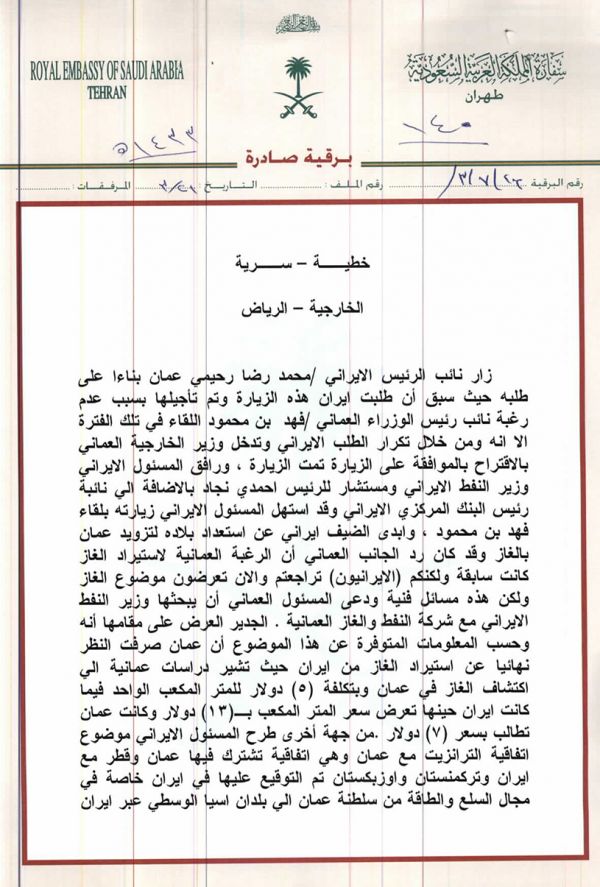 ROYAL EMBASSY OF SAUDI ARABIA
TEHRAN
سفارة المملكة العربية السعودية
طهران
١٤٠
٥١٤٣٣
برقية صادرة
رقم البرقية ٣/٧/٢٣/ رقم الملف: التاريخ ٣/٢١ المرفقات:
خطية – سرية
الخارجية – الرياض
زار نائب الرئيس الايراني /محمد رضا رحيمي عمان بناءا على
طلبه حيث سبق أن طلبت ايران هذه الزيارة وتم تأجيلها بسبب عدم
رغبة نائب رئيس الوزراء العماني /فهد بن محمود اللقاء في تلك الفترة
الا انه ومن خلال تكرار الطلب الايراني وتدخل وزير الخارجية العماني
بالاقتراح بالموافقة على الزيارة تمت الزيارة ، ورافق المسئول الايراني
وزير النفط الايراني ومستشار للرئيس احمدي نجاد بالاضافة الي نائبة
رئيس البنك المركزي الايراني وقد استهل المسئول الايراني زيارته بلقاء
فهد بن محمود ، وابدى الضيف ايراني عن استعداد بلاده لتزويد عمان
بالغاز وقد كان رد الجانب العماني أن الرغبة العمانية لاستيراد الغاز
كانت سابقة ولكنكم (الايرانيون) تراجعتم والان تعرضون موضوع الغاز
ولكن هذه مسائل فنية ودعى المسئول العماني أن يبحثها وزير النفط
الايراني مع شركة النفط والغاز العمانية . الجدير العرض على مقامها أنه
وحسب المعلومات المتوفرة عن هذا الموضوع أن عمان صرفت النظر
نهائيا عن استيراد الغاز من ايران حيث تشير دراسات عمانية الي
اكتشاف الغاز في عمان وبتكلفة (٥) دولار للمتر المكعب الواحد فيما
كانت ايران حينها تعرض سعر المتر المكعب بــ(١٣) دولار وكانت عمان
تطالب بسعر (٧) دولار .من جهة أخرى طرح المسئول الايراني موضوع
اتفاقية الترانزيت مع عمان وهي اتفاقية تشترك فيها عمان وقطر مع
ايران وتركمنستان واوزبكستان تم التوقيع عليها في ايران خاصة في
مجال السلع والطاقة من سلطنة عمان الي بلدان اسيا الوسطي عبر ايران